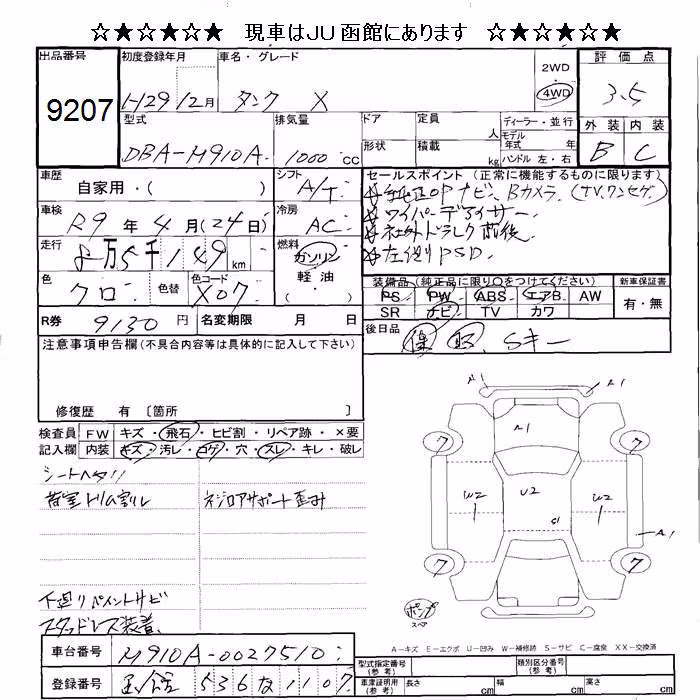 ☆★☆★☆★ 現車はJU函館にあります ☆★☆★☆★
出品番号 初度登録年月 車名・グレード 2WD 評価点
9207 H29 12月 タンク X 4WD 3.5
型式 排気量 ドア 定員 人 ディーラー・並行 外装 内装
DBA-M910A 1000cc 形状 積載 kg モデル年式 年 B C
ハンドル 左・右
車歴 自家用・( ) シフト A/T セールスポイント (正常に機能するものに限ります)
純正OPナビ、Bカメラ、(TVワンセグ)
車検 R9年4月(24日) 冷房 AC ワイパーデアイサー
社外ドラレコ前後
走行 8万5千149km 燃料 ガソリン 軽油 ( ) 左側PSD
色 クロ 色替 色コード X07 装備品 (純正品に限り○をつけてください) 新車保証書
PS PW ABS エアB AW 有・無
SR ナビ TV カワ
R券 9130円 名変期限 月 日 後日品 保 取 、Sキー
注意事項申告欄(不具合内容等は具体的に記入して下さい)
修復歴 有 〔箇所 〕
検査員 FW キズ・飛石・ヒビ割・リペア跡・×要
記入欄 内装 キズ・汚レ・コゲ・穴・スレ・キレ・破レ
シートヘタリ
荷室トリム割レ ネジロアサポート歪み
下廻りペイントサビ
スタッドレス装着
A1 A1
A1
7 7
U2 U2 U2
G1
A1
7 7
ポンプ
スペア
A-キズ E-エクボ U-凹み W-補修跡 S-サビ C-腐食 XX-交換済
車台番号 M910A-0027510 型式指定番号(参考) 類別区分番号(参考)
登録番号 函館 536 な 1107 車庫証明用(参考) 長さ cm 幅 cm 高さ cm